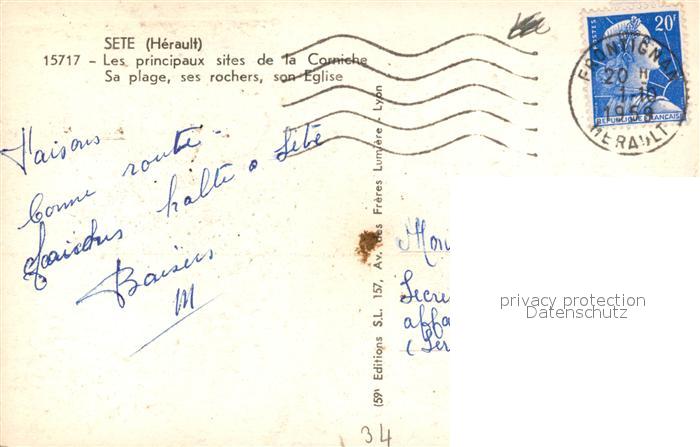 SETE (Hérault)
15717 - Les principaux sites de la Corniche
Sa plage, ses rochers, son Eglise
20F
POSTES
REPUBLIQUE FRANÇAISE
FRONTIGNAN
20 H
1-10
HERAULT
Faisons
bonne route
halte a Sète
Baisers
M
(59) Editions S.L. 157, Av. des Frères Lumière - Lyon
Mon
Secre
affa
(Ser
privacy protection
Datenschutz
34